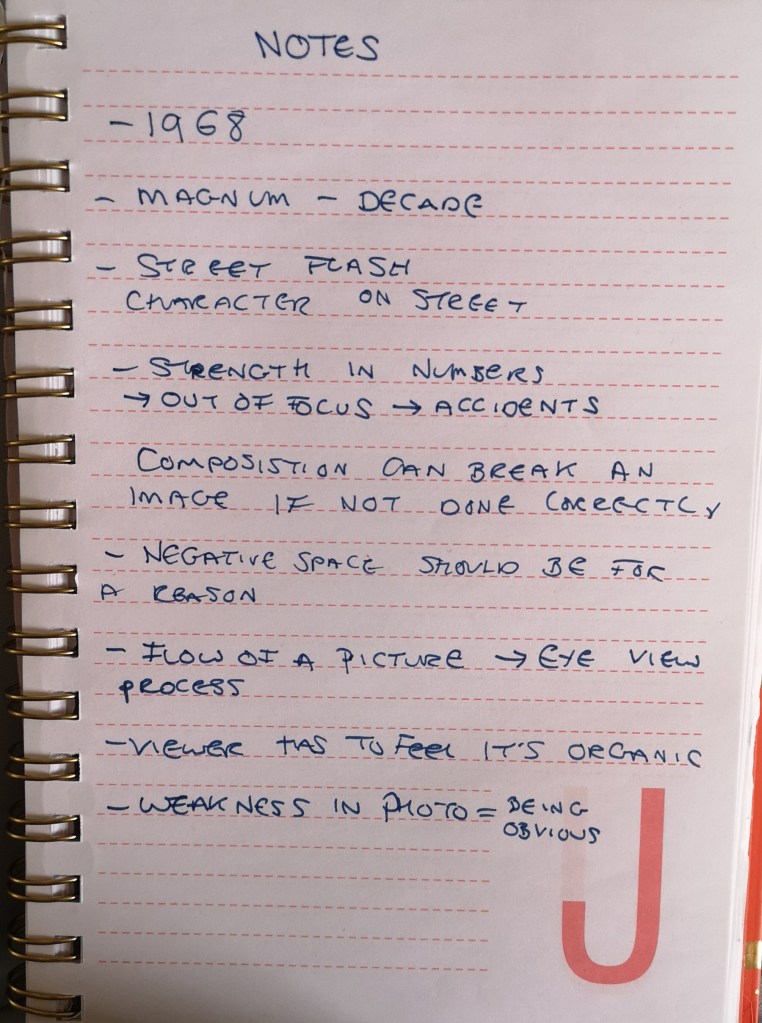 NOTES
- 1968
- MAGNUM - DECADE
- STREET FLASH
CHARACTER ON STREET
- STRENGTH IN NUMBERS
→ OUT OF FOCUS → ACCIDENTS
COMPOSISTION CAN BREAK AN
IMAGE IF NOT DONE CORRECTLY
- NEGATIVE SPACE SHOULD BE FOR
A REASON
- FLOW OF A PICTURE → EYE VIEW
PROCESS
- VIEWER HAS TO FEEL IT'S ORGANIC
- WEAKNESS IN PHOTO = BEING
OBVIOUS
J